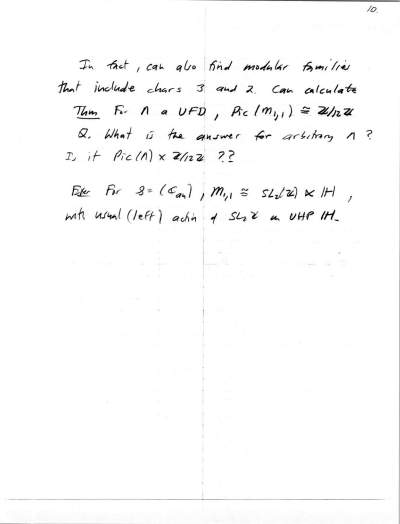 10.
In fact, can also find modular families
that include chars 3 and 2. Can calculate
Thm For Λ a UFD, Pic(M₁,₁) ≅ ℤ/12ℤ
Q. What is the answer for arbitrary Λ?
Is it Pic(Λ) × ℤ/12ℤ ??
For S = (ℂan), M₁,₁ ≅ SL₂(ℤ) ⋉ ℍ,
with usual (left) action of SL₂ℤ on UHP ℍ.